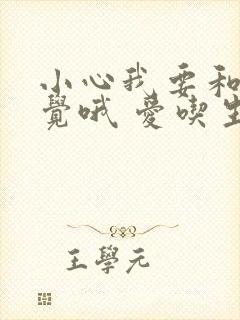 小心我要和
覺哦 愛喫生
王學元